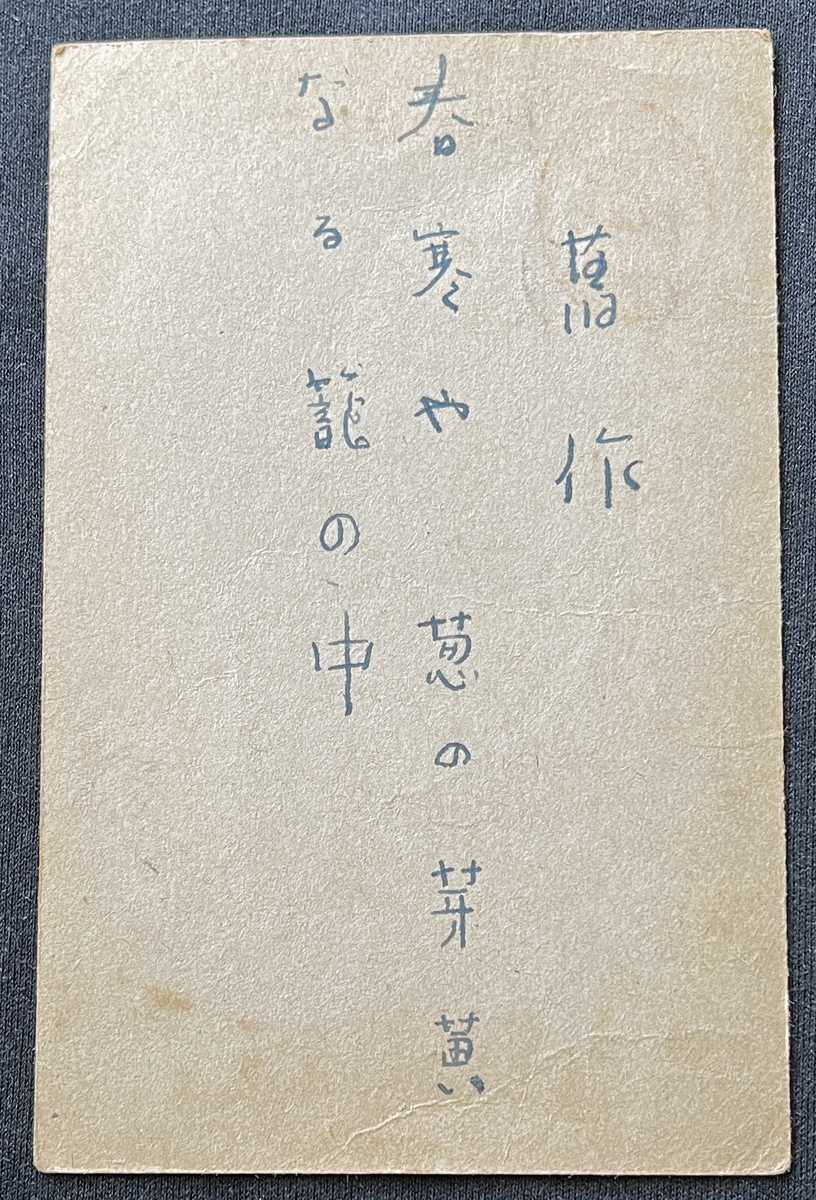 舊作
春寒や葱の芽黄
なる籠の中